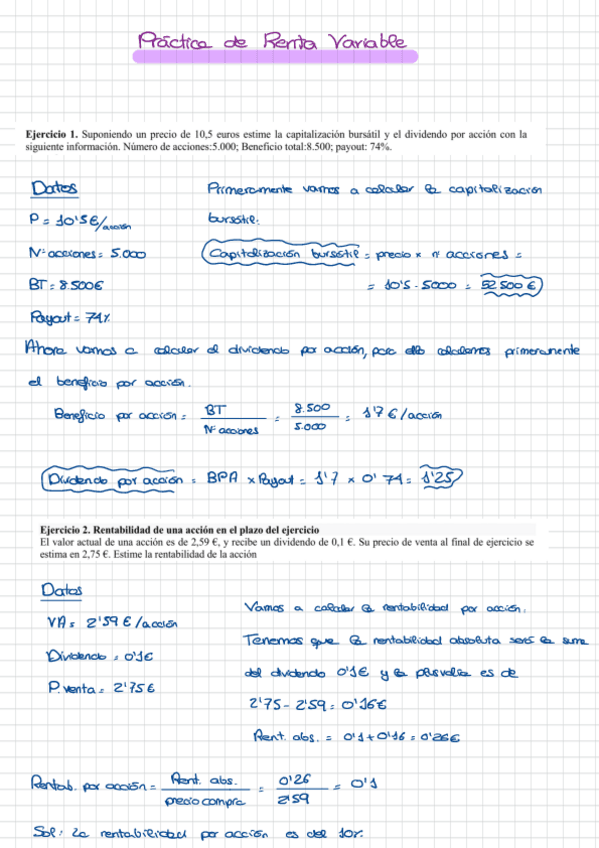 Práctica de Renta Variable
Ejercicio 1. Suponiendo un precio de 10,5 euros estime la capitalización bursátil y el dividendo por acción con la
siguiente información. Número de acciones:5.000; Beneficio total:8.500; payout: 74%.
Datos
P = 10'5€/acción
Nº acciones = 5.000
BT = 8.500€
Payout = 74%
Primeramente vamos a calcular la capitalización
bursátil:
Capitalización bursátil = precio x nº acciones =
= 10'5 · 5000 = 52.500 €
Ahora vamos a calcular el dividendo por acción, para ello calculamos primeramente
el beneficio por acción.
Beneficio por acción = BT / Nº acciones = 8.500 / 5.000 = 1'7 €/acción
Dividendo por acción = BPA x Payout = 1'7 x 0'74 = 1'25
Ejercicio 2. Rentabilidad de una acción en el plazo del ejercicio
El valor actual de una acción es de 2,59 €, y recibe un dividendo de 0,1 €. Su precio de venta al final de ejercicio se
estima en 2,75 €. Estime la rentabilidad de la acción
Datos
VA = 2'59 €/acción
Dividendo = 0'1€
P. venta = 2'75€
Vamos a calcular la rentabilidad por acción.
Tenemos que la rentabilidad absoluta será la suma
del dividendo 0'1€ y la plusvalía es de
2'75 - 2'59 = 0'16€
Rent. abs. = 0'1 + 0'16 = 0'26€
Rentab. por acción = Rent. abs. / precio compra = 0'26 / 2'59 = 0'1
Sol: La rentabilidad por acción es del 10%.